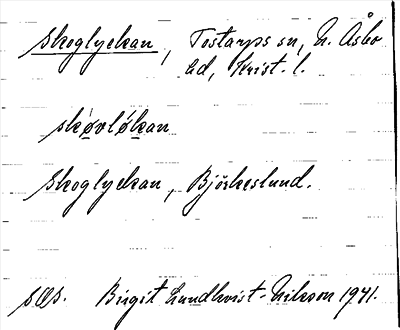 Skoglyckan, Tostarps sn, N. Åsbo
hd, Krist. l.
skǿvlǿkan
Skoglyckan, Björkeslund.
sæs. Birgit Lundkvist-Nilsson 1941.